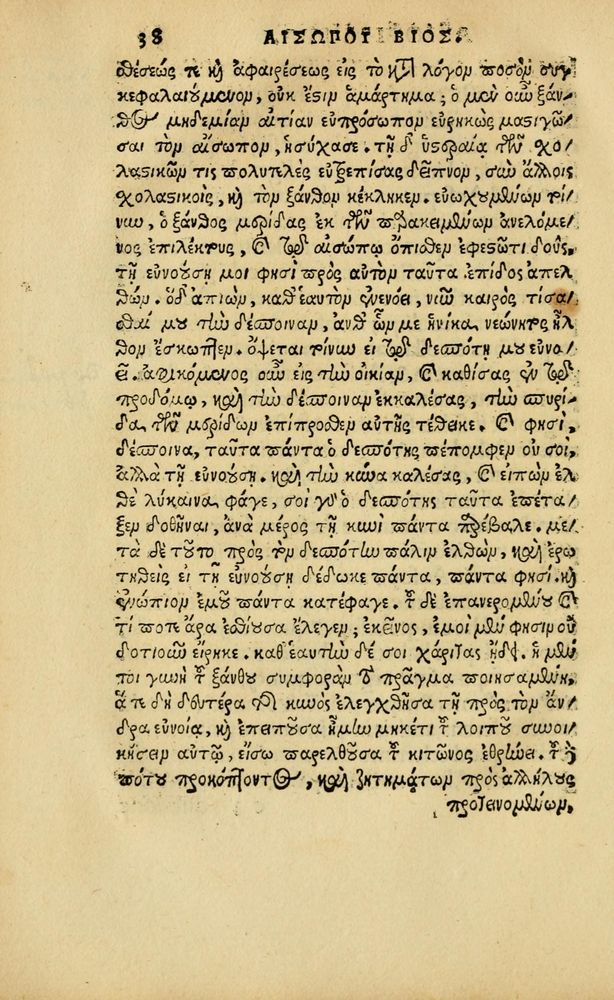 38 ΑΙΣΩΠΟΥ ΒΙΟΣ.
θέσεώς τε καὶ ἀφαιρέσεως εἰς τὸ κτ̃ λόγον ποσὸν συγ
κεφαλαιούμενον, οὐκ ἔστιν ἁμάρτημα; ὁ μὲν οὖν ξάν-
θος μηδεμίαν αἰτίαν εὐπρόσωπον εὑρηκὼς μαστιγῶ-
σαι τὸν αἴσωπον, ἡσύχασε. τῇ δ' ὑστεραίᾳ τῶν σχο-
λαστικῶν τις πολυτελὲς εὐτρεπίσας δεῖπνον, σὺν ἄλλοις
σχολαστικοῖς, καὶ τὸν ξάνθον κέκληκεν. εὐωχουμένων τοί-
νυν, ὁ ξάνθος μερίδας ἐκ τῶν παρακειμένων ἀνελόμε-
νος ἐπιλέκτους, καὶ τῷ αἰσώπῳ ὄπισθεν ἐφεστῶτι δούς,
τῇ εὐνούσῃ μοι φησὶ πρὸς αὐτὸν ταῦτα ἐπίδος ἀπελ
θών. ὁ δ' ἀπιὼν, καθ' ἑαυτὸν ἐνενόει, νῦν καιρὸς τίσα-
σθαί μου τὴν δέσποιναν, ἀνθ' ὧν με ἡνίκα νεώνητος ἦλ
θον ἔσκωπτεν. ὄψεται τοίνυν εἰ τῷ δεσπότῃ μου εὐνο-
εῖ. ἀφικόμενος οὖν εἰς τὴν οἰκίαν, καὶ καθίσας ἐν τῷ
προδόμῳ, καὶ τὴν δέσποιναν ἐκκαλέσας, τὴν σπυρί-
δα τῶν μερίδων ἐπίπροσθεν αὐτῆς τέθεικε. καὶ φησὶ,
δέσποινα, ταῦτα πάντα ὁ δεσπότης πέπομφεν οὐ σοί,
ἀλλὰ τῇ εὐνούσῃ. καὶ τὴν κύνα καλέσας, καὶ εἰπὼν ἐλ
θὲ λύκαινα, φάγε, σοὶ γὰρ ὁ δεσπότης ταῦτα ἐπέτα-
ξεν δοθῆναι, ἀνὰ μέρος τῇ κυνὶ πάντα προέβαλε. με-
τὰ δὲ τοῦτο πρὸς τὸν δεσπότην πάλιν ἐλθὼν, καὶ ἐρω
τηθεὶς εἰ τῇ εὐνούσῃ δέδωκε πάντα, πάντα φησί. καὶ
ἐνώπιον ἐμοῦ πάντα κατέφαγε. τοῦ δὲ ἐπανερομένου καὶ
τί ποτε ἄρα ἐσθίουσα ἔλεγεν; ἐκεῖνος, ἐμοὶ μέν φησιν οὐ
δοτιοῦν εἴρηκε. καθ' ἑαυτὴν δέ σοι χάριτας ᾔδει. ἡ μέν
τοι γυνὴ τοῦ ξάνθου συμφορὰν τὸ πρᾶγμα ποιησαμένη,
ἅτε δὴ δευτέρα τῆς κυνὸς ἐλεγχθῆσα τῇ πρὸς τὸν ἄν-
δρα εὐνοίᾳ, καὶ ἐπειποῦσα ἦ μὴν μηκέτι τοῦ λοιποῦ συνοι-
κήσειν αὐτῷ, εἴσω παρελθοῦσα τοῦ κιτῶνος ἐθρήνει. τοῦ δὲ
πότου προκόπτοντος, καὶ ζητημάτων πρὸς ἀλλήλους
προτεινομένων,